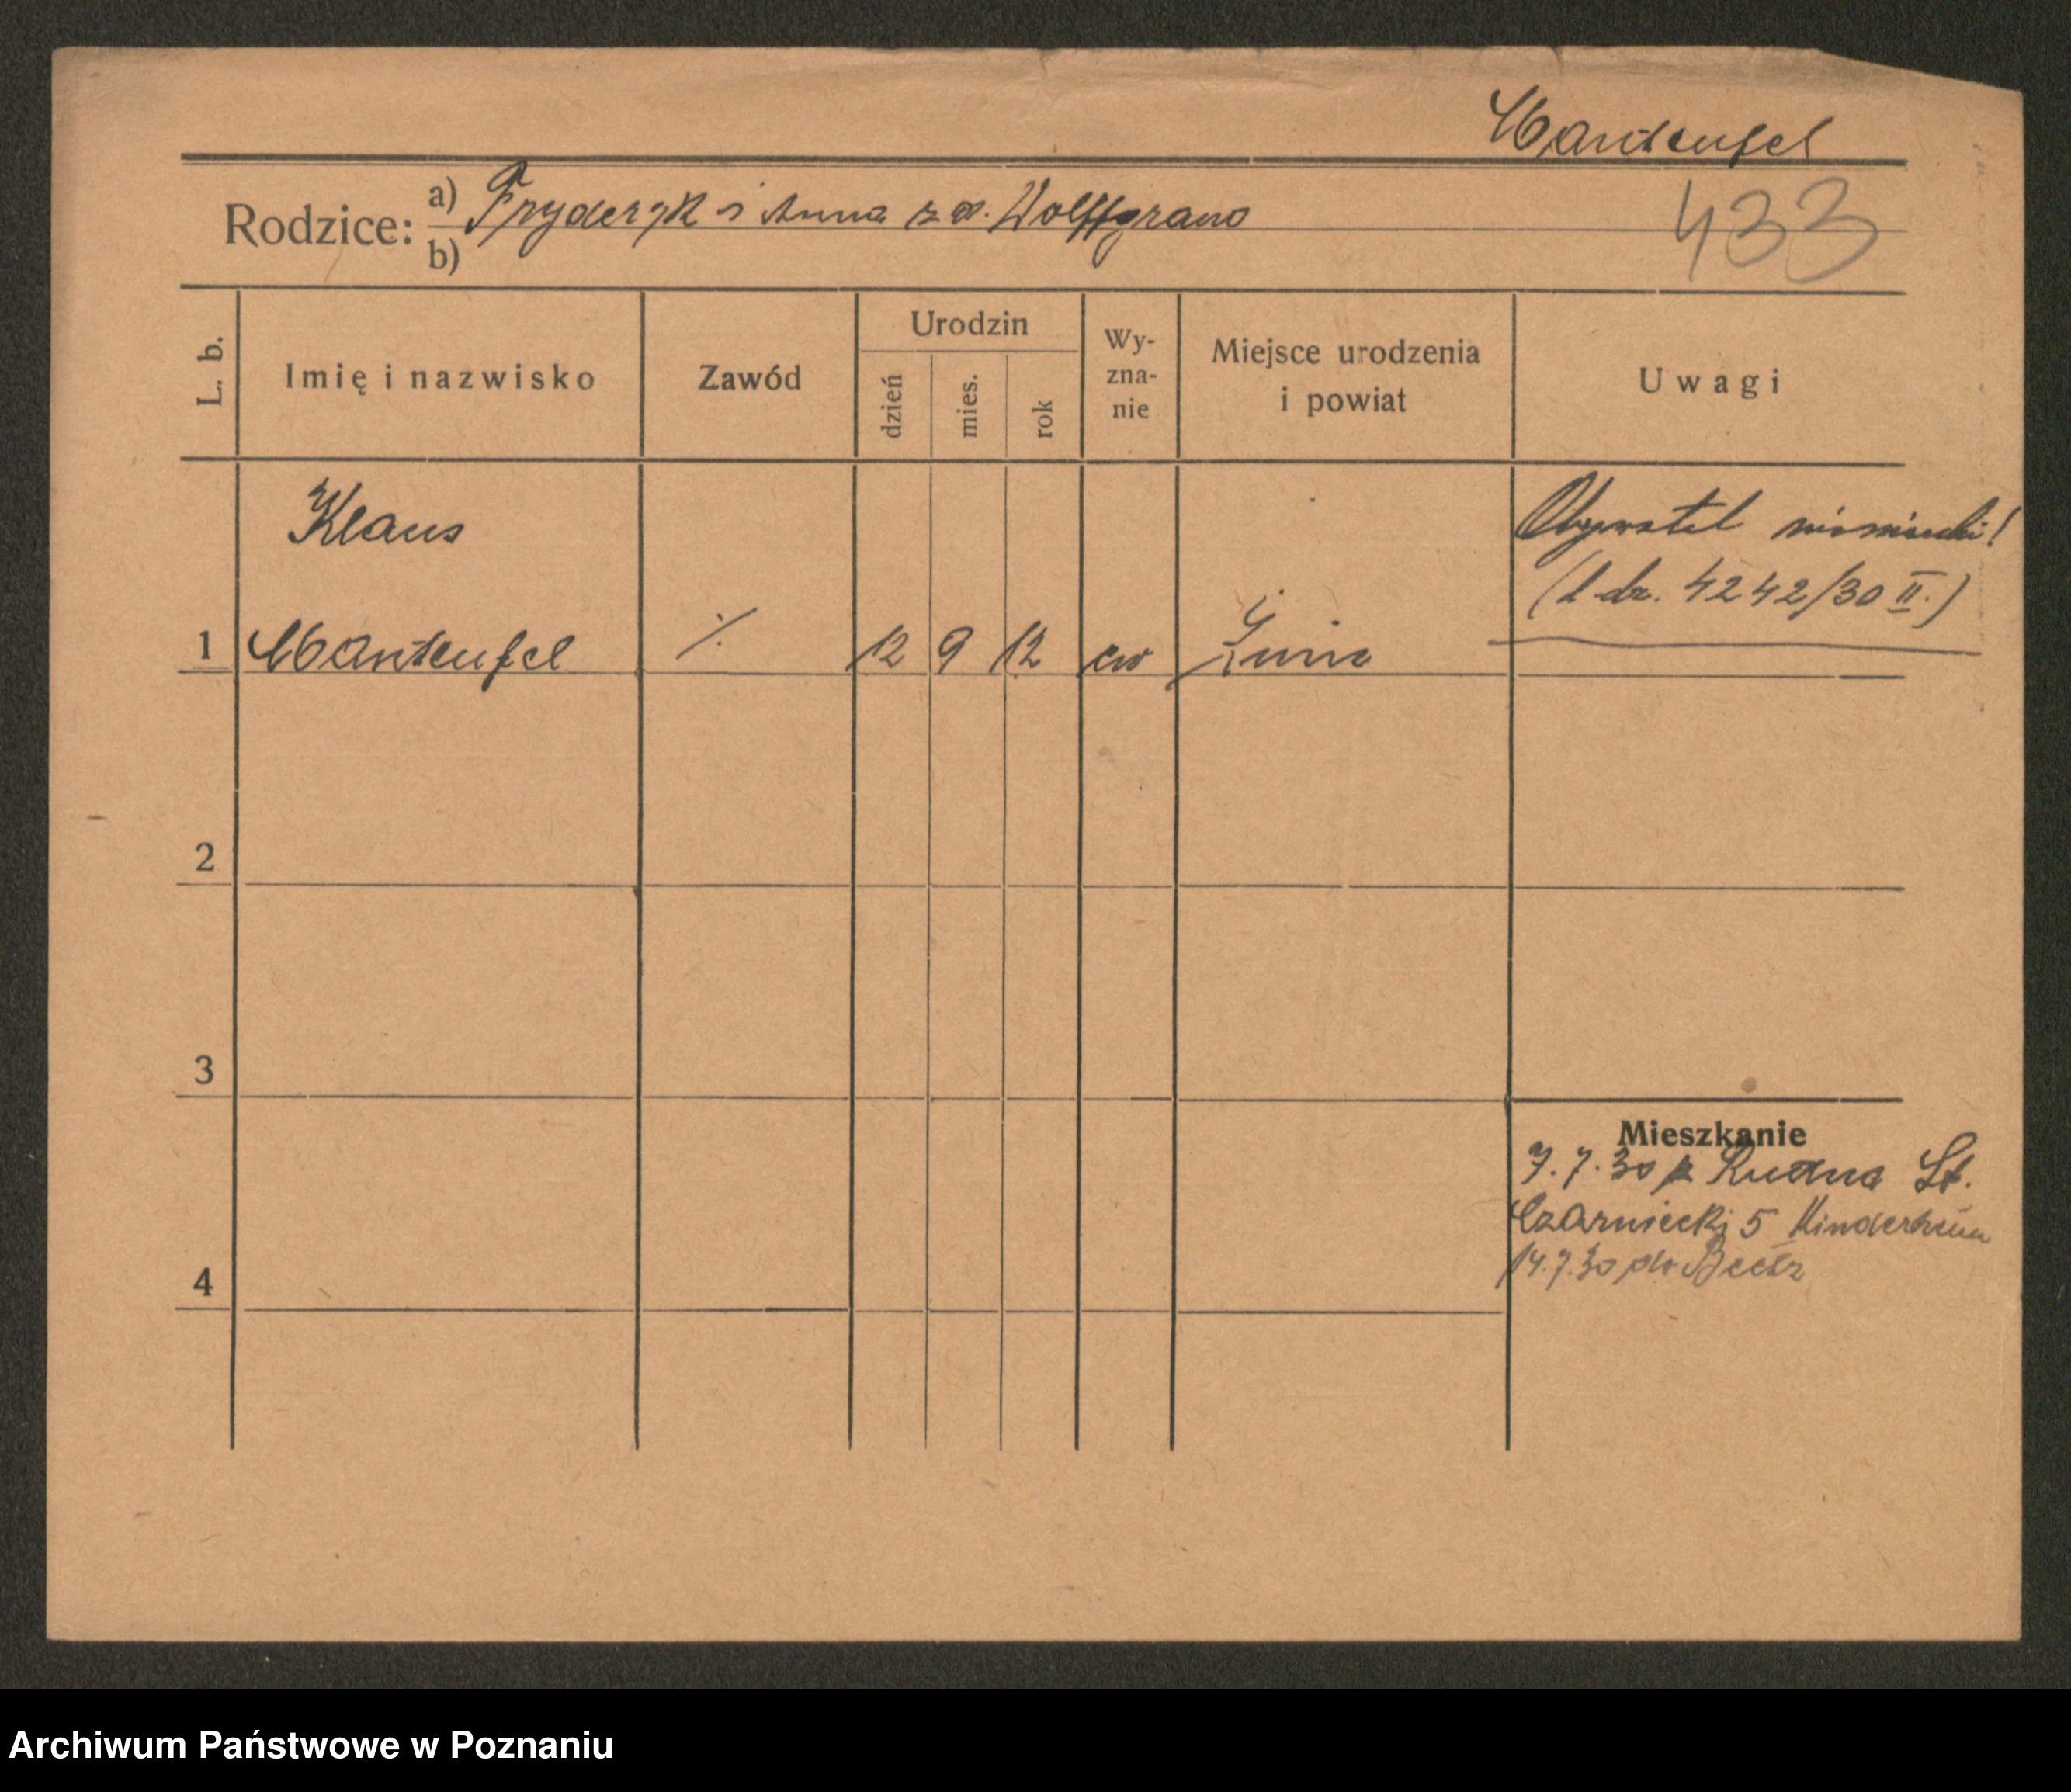 Manteufel
Rodzice: a) Fryderyk i Anna z d. Wolffgramm
b)
433
L. b.
Imię i nazwisko
Zawód
Urodzin
dzień
mies.
rok
Wy-
zna-
nie
Miejsce urodzenia
i powiat
Uwagi
Klaus
Obywatel niemiecki!
(l. dz. 4242/30 II.)
1 Manteufel ./. 12 9 12 ew Żnin
2
3
4
Mieszkanie
7.7.30 z Kutna St.
Czarniecki 5 Kinderheim
14.7.30 do
Archiwum Państwowe w Poznaniu